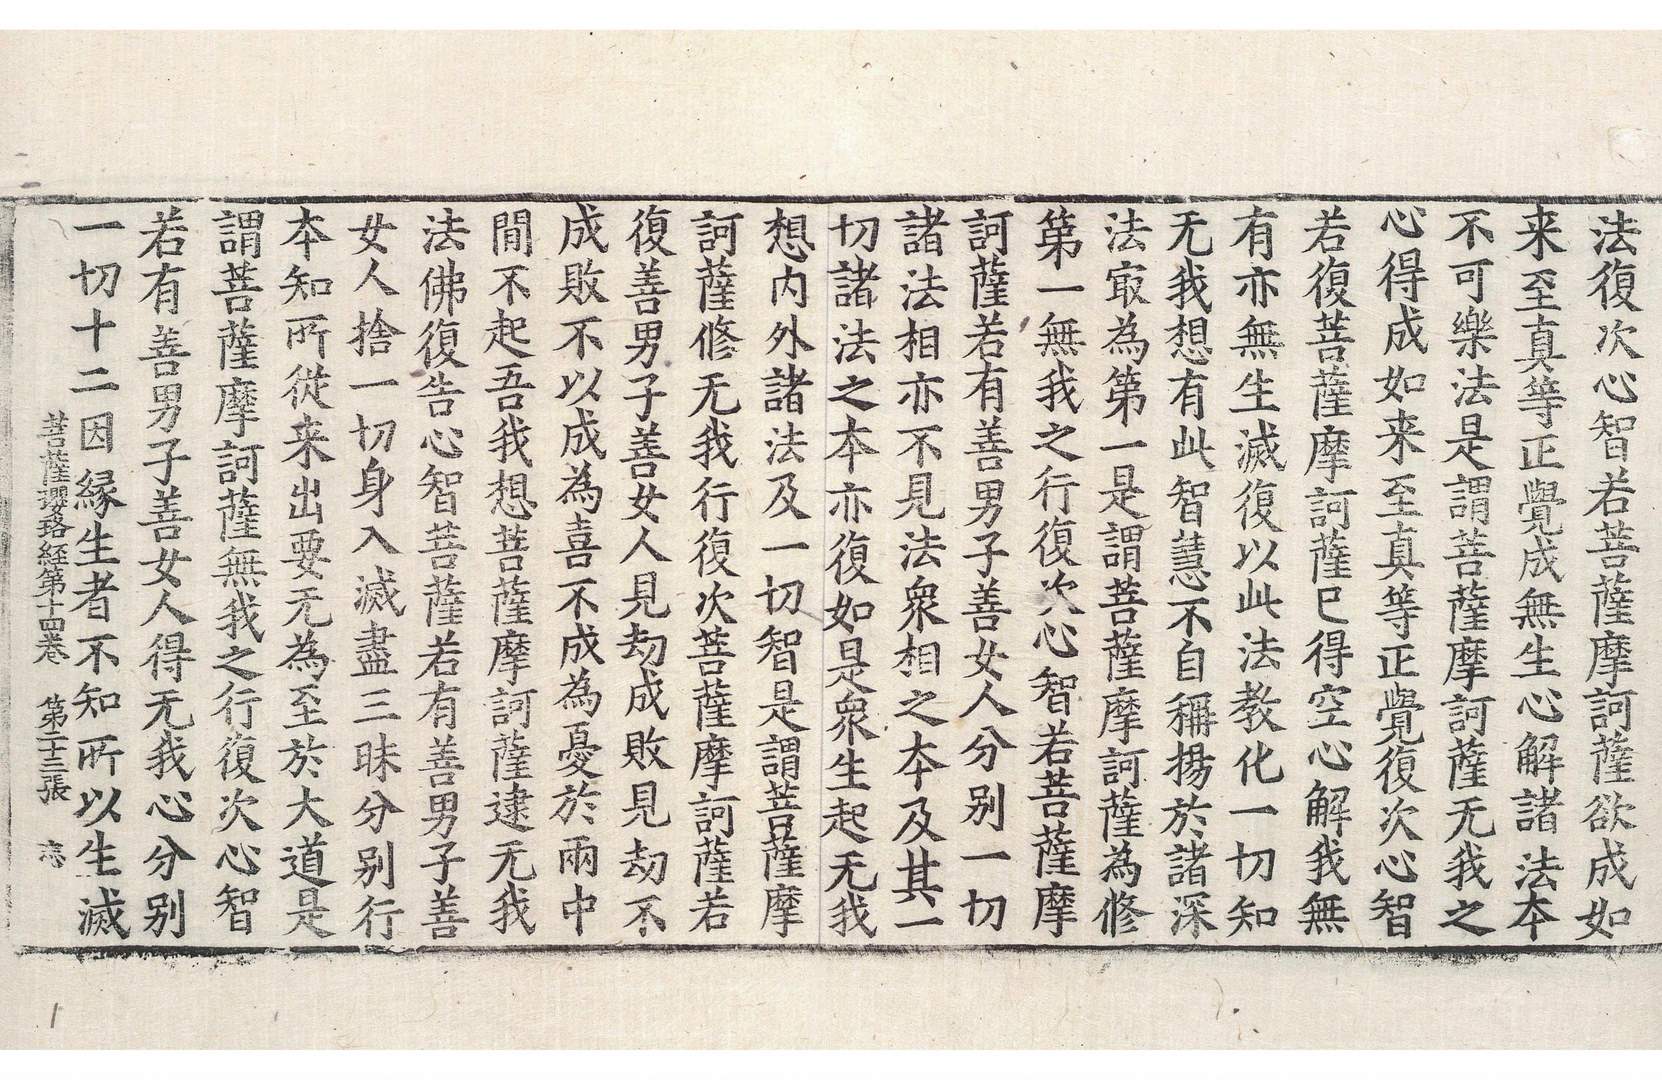 法復次心智若菩薩摩訶薩欲成如
来至真等正覺成無生心解諸法本
不可樂法是謂菩薩摩訶薩无我之
心得成如来至真等正覺復次心智
若復菩薩摩訶薩已得空心解我無
有亦無生滅復以此法教化一切知
无我想有此智慧不自稱揚於諸深
法冣為第一是謂菩薩摩訶薩為修
第一無我之行復次心智若菩薩摩
訶薩若有善男子善女人分别一切
諸法相亦不見法衆相之本及其一
切諸法之本亦復如是衆生起无我
想内外諸法及一切智是謂菩薩摩
訶薩修无我行復次菩薩摩訶薩若
復善男子善女人見劫成敗見劫不
成敗不以成為喜不成為憂於兩中
間不起吾我想菩薩摩訶薩逮无我
法佛復告心智菩薩若有善男子善
女人捨一切身入滅盡三昧分别行
本知所從来出要无為至於大道是
謂菩薩摩訶薩無我之行復次心智
若有善男子善女人得无我心分别
一切十二因縁生者不知所以生滅
菩薩瓔珞經第十四卷　第二十三張　志